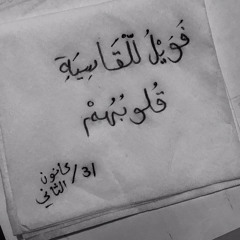 فَوَيْلُ للْقَاسِيَةِ
قُلوبُهُمْ
31/ كانون
الثاني